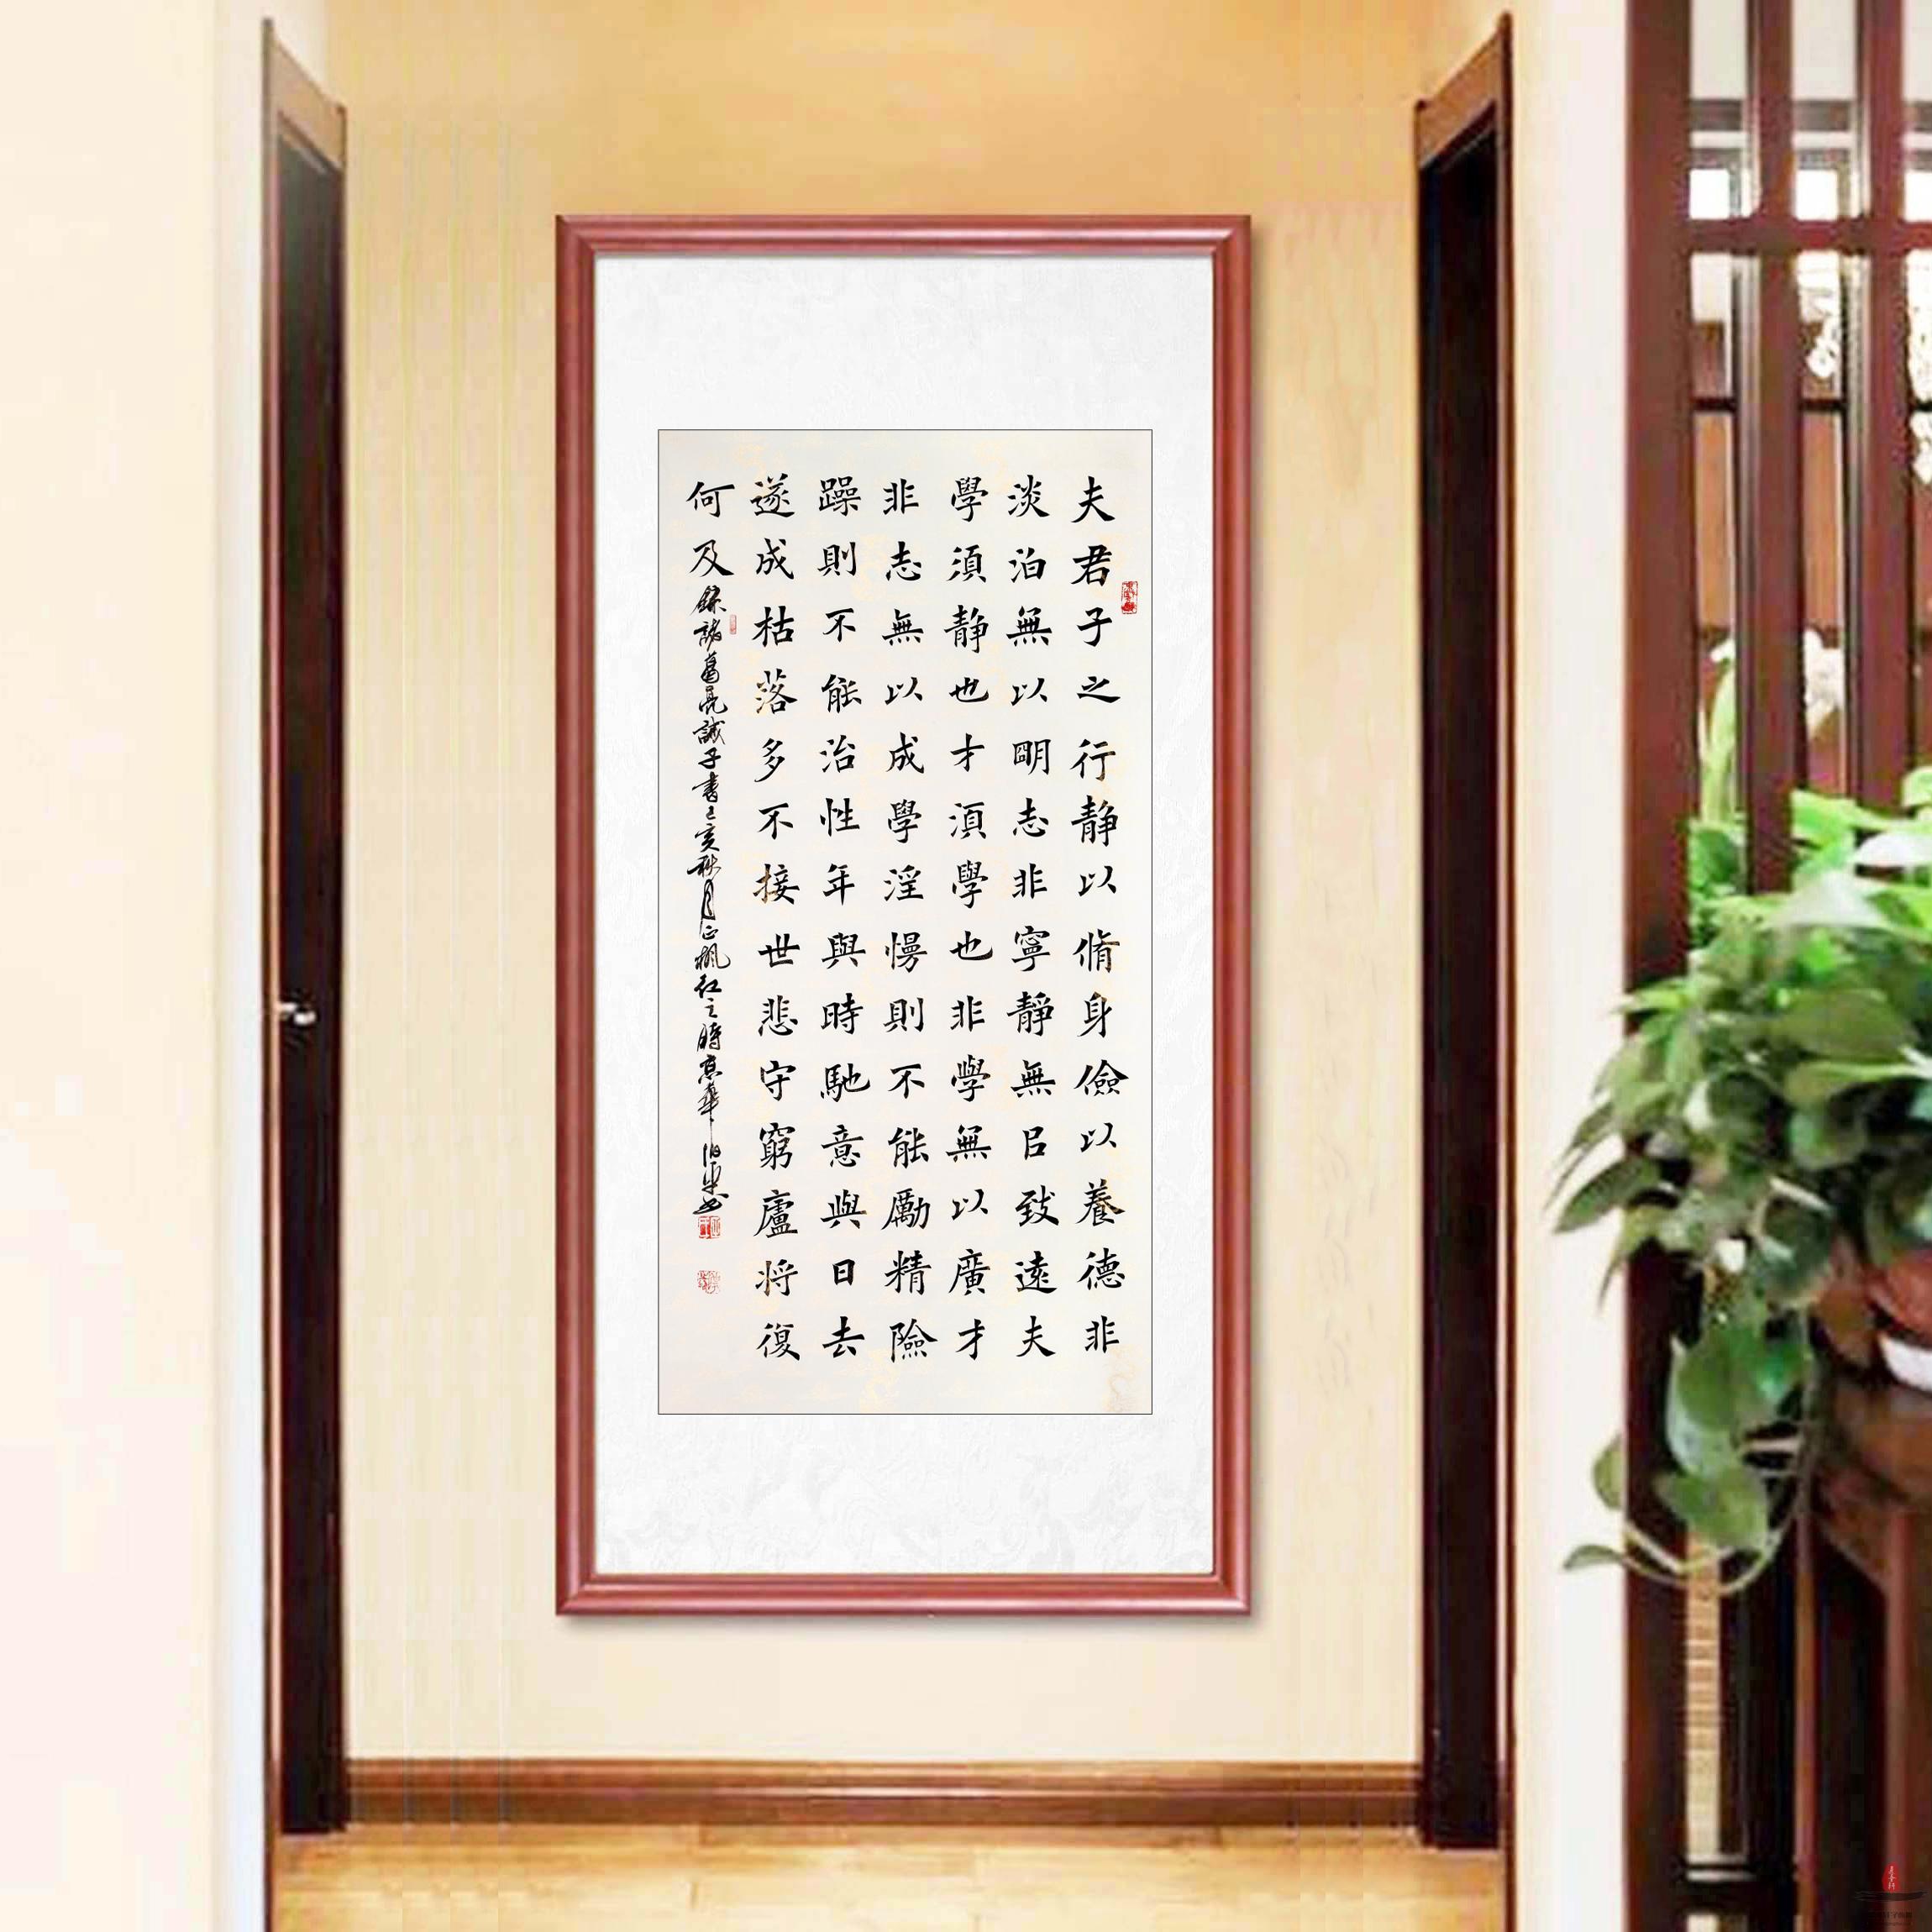 夫君子之行静以脩身儉以養德非
淡泊無以明志非寧靜無㠯致遠夫
學須静也才須學也非學無以廣才
非志無以成學淫慢則不能勵精險
躁則不能治性年與時馳意與日去
遂成枯落多不接世悲守窮廬将復
何及
錄諸葛亮誡子書己亥秋月正楓紅之時京華